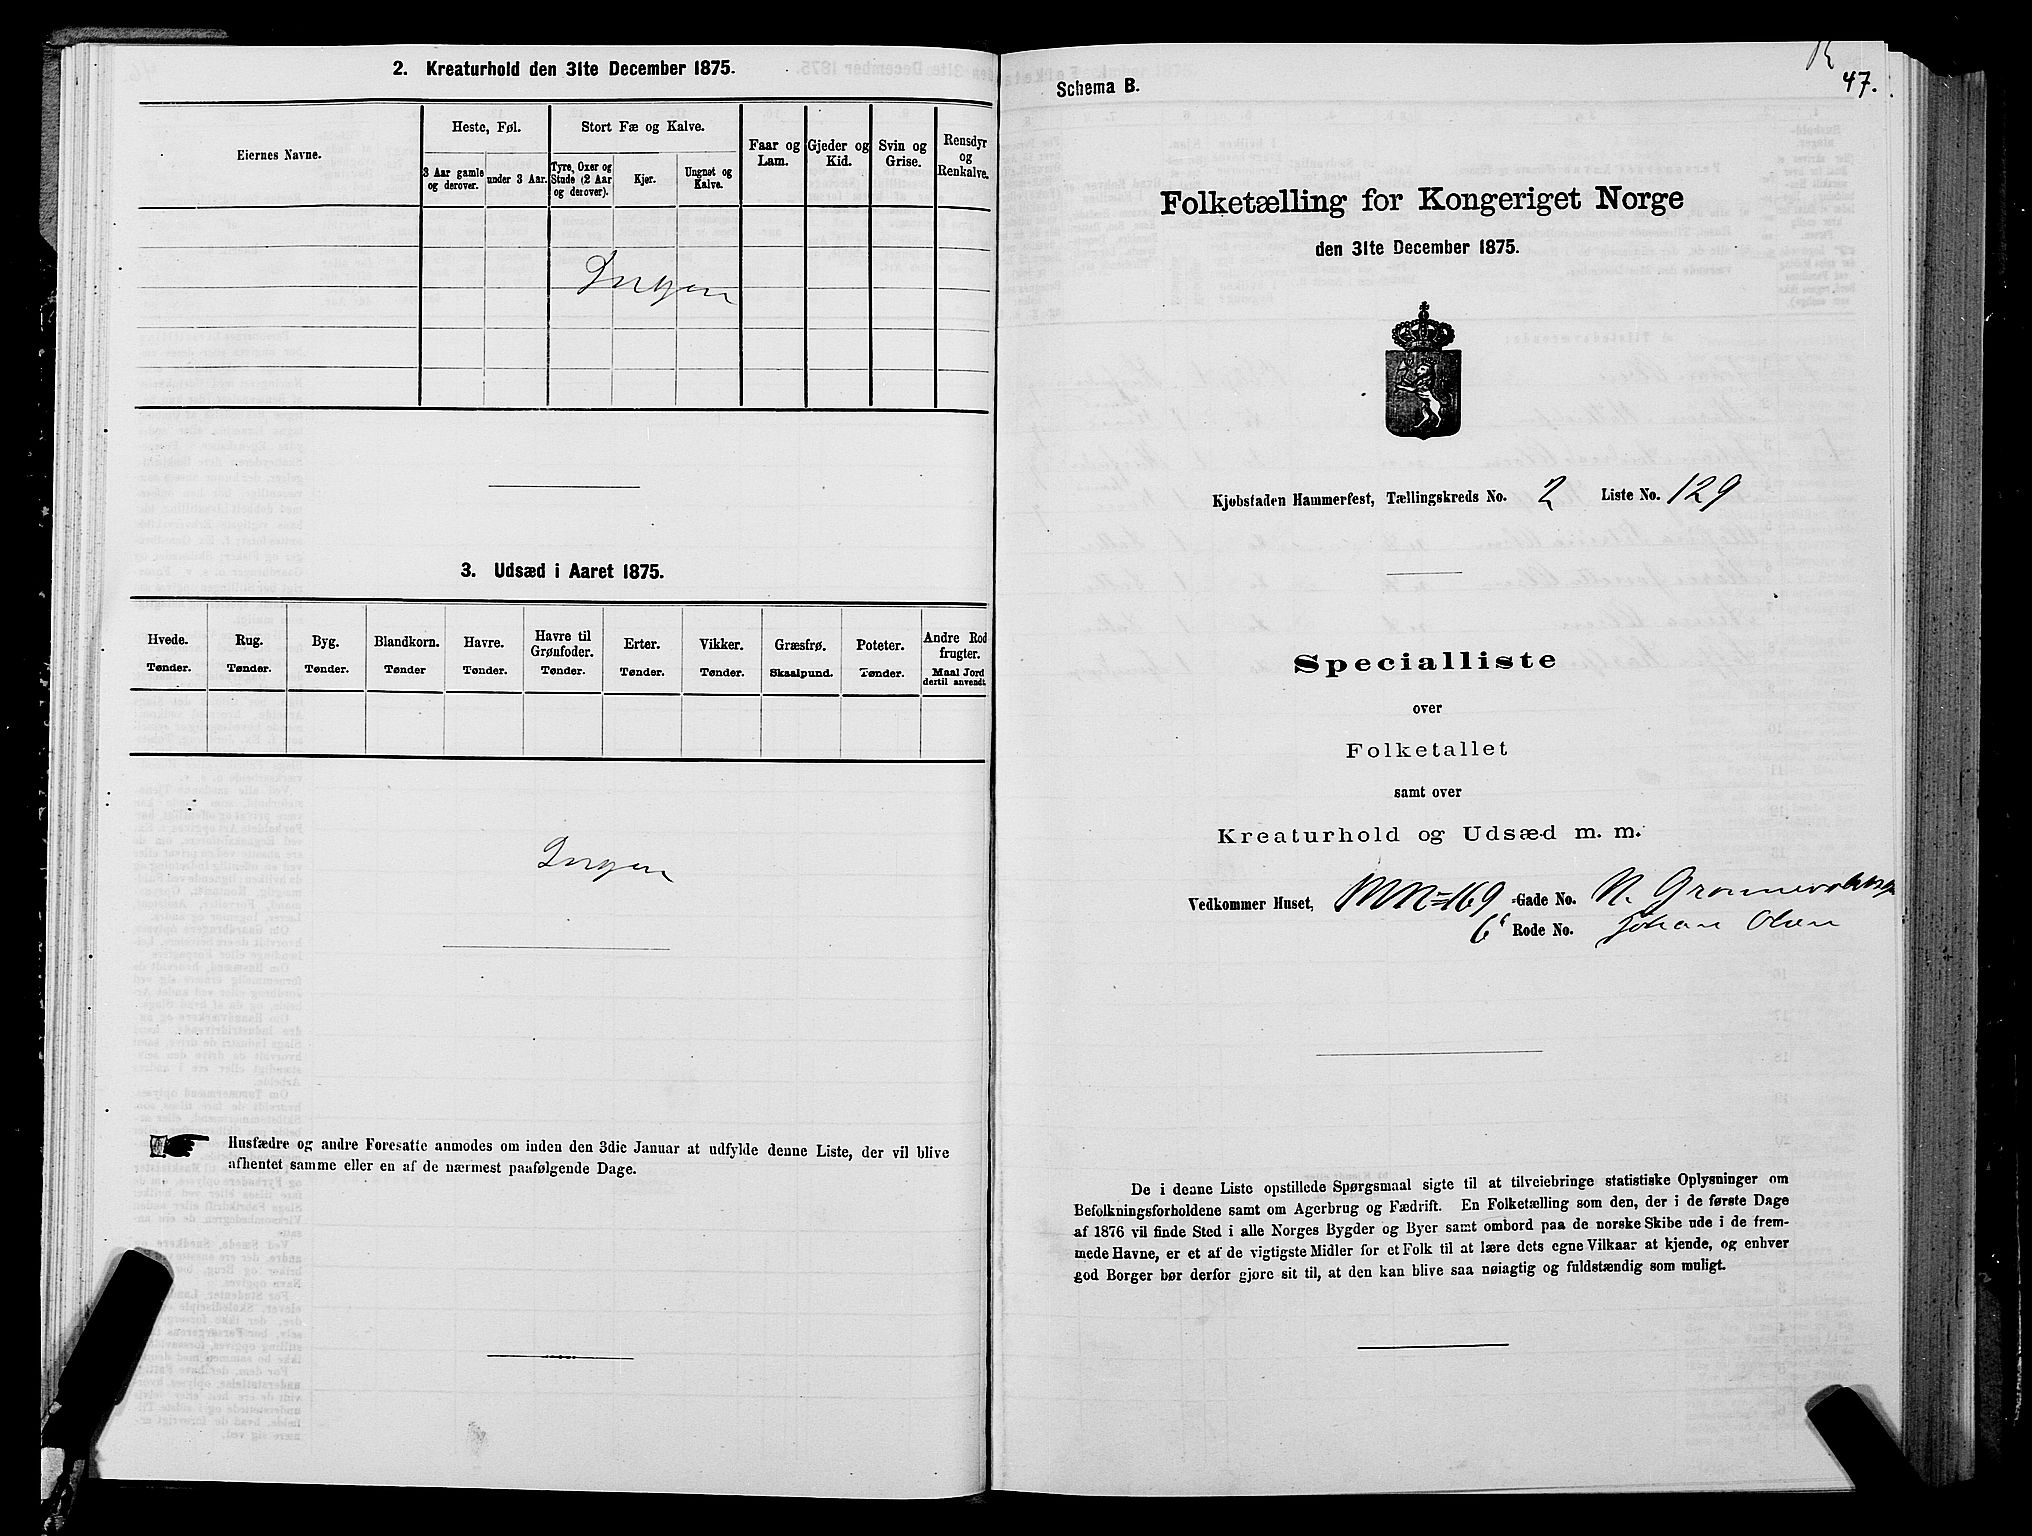 2. Kreaturhold den 31te December 1875.
Eiernes Navne.
Heste, Føl.
Stort Fæ og Kalve.
Faar og
Lam.
Gjeder og
Kid.
Svin og
Grise.
Rensdyr
og
Renkalve.
3 Aar gamle
og derover.
under 3 Aar.
Tyre, Oxer og
Stude (2 Aar
og derover).
Kjør.
Ungnøt og
Kalve.
Ingen
3. Udsæd i Aaret 1875.
Hvede.
Tønder.
Rug.
Tønder.
Byg.
Tønder.
Blandkorn.
Tønder
Havre.
Tønder.
Havre til
Grønfoder.
Tønder.
Erter.
Tønder.
Vikker.
Tønder.
Græsfrø.
Skaalpund.
Poteter.
Tønder.
Andre Rod
frugter.
Maal Jord
dertil anvendt.
Ingen
Husfædre og andre Foresatte anmodes om inden den 3die Januar at udfylde denne Liste, der vil blive
afhentet samme eller en af de nærmest paafølgende Dage.
47.
Schema B.
Folketælling for Kongeriget Norge
den 31te December 1875.
Kjøbstaden Hammerfest, Tællingskreds No. 2 Liste No. 129
Specialliste
over
Folketallet
samt over
Kreaturhold og Udsæd m. m.
Vedkommer Huset, MN=169 -Gade No. N.
6 Rode No. Johan Olsen
De i denne Liste opstillede Spørgsmaal sigte til at tilveiebringe statistiske Oplysninger om
Befolkningsforholdene samt om Agerbrug og Fædrift. En Folketælling som den, der i de første Dage
af 1876 vil finde Sted i alle Norges Bygder og Byer samt ombord paa de norske Skibe ude i de frem-
mede Havne, er et af de vigtigste Midler for et Folk til at lære dets egne Vilkaar at kjende, og enhver
god Borger bør derfor gjøre sit til, at den kan blive saa nøiagtig og fuldstændig som muligt.